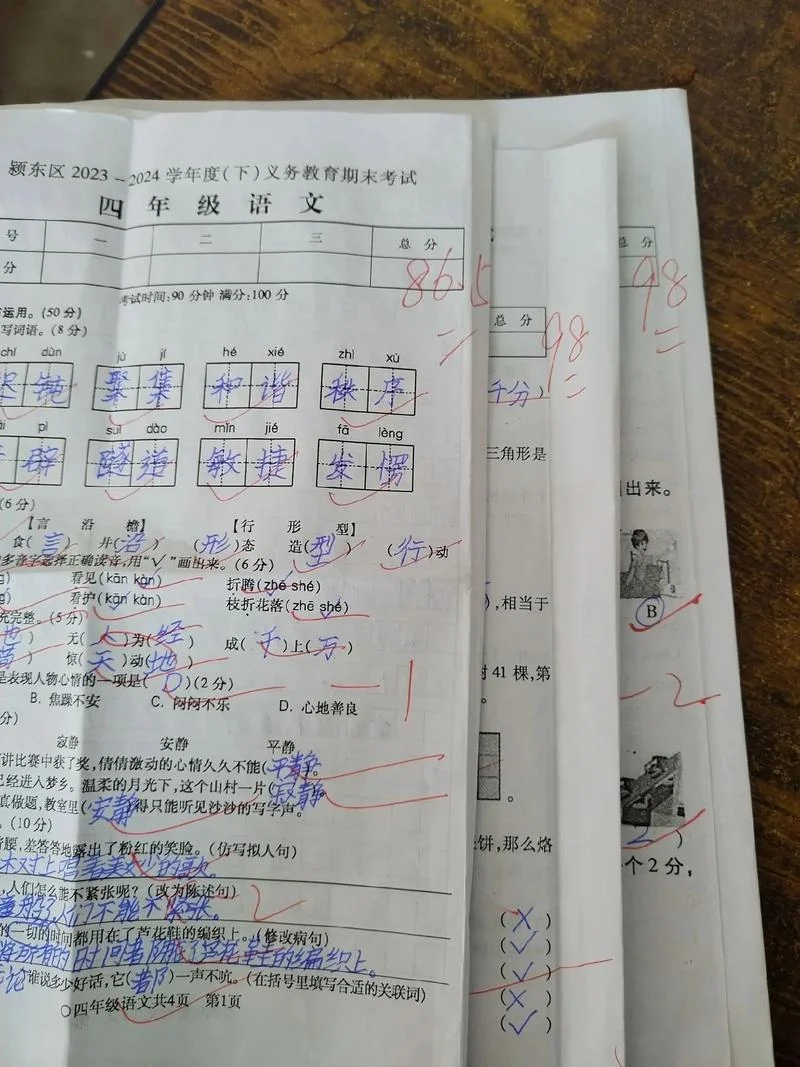 颍东区 2023-2024 学年度(下)义务教育期末考试
四 年 级 语 文
号 一 二 三 总 分
分 86.5
考试时间:90 分钟 满分:100 分
运用。(50 分)
写词语。(8 分)
chí dùn jù jí hé xié zhì xù
聚集 和谐 秩序
pì suì dào mǐn jié fā lèng
辟 隧道 敏捷 发愣
(6 分)
【言 沿 檐】 【行 形 型】
食(言) 井(沿) (形)态 造(型) (行)动
多音字选择正确读音,用“√”画出来。(6 分)
看见(kān kàn) 折腾(zhē shé)
看护(kān kàn) 枝折花落(zhē shé)
充完整。(5 分)
也) 无(人)为(经) 成(千)上(万)
) 惊(天)动(地)
是表现人物心情的一项是(D)(2 分)
-1
B. 焦躁不安 C. 闷闷不乐 D. 心地善良
分)
寂静 安静 平静
讲比赛中获了奖,倩倩激动的心情久久不能(平静)。
已经进入了梦乡。温柔的月光下,这个山村一片(寂静
真做题,教室里(安静得只能听见沙沙的写字声。
。(10 分)
腰,羞答答地露出了粉红的笑脸。(仿写拟人句)
对上唱着美妙的
,人们怎么能不紧张呢?(改为陈述句)
人们不能不紧张。 2
的一切的时间都用在了芦花鞋的编织上。(修改病句)
将所有的时间都用在了芦花鞋的编织上。
论谁说多少好话,它(都)一声不吭。(在括号里填写合适的关联词)
○四年级语文共4页 第1页
总 分
98
千分)
三角形是
,相当于
41 棵,第
。
。
饼,那么烙
(×)
(√)
(√)
(×)
(√)
总 分
98
出来。
B
-2
2 )
个 2 分,